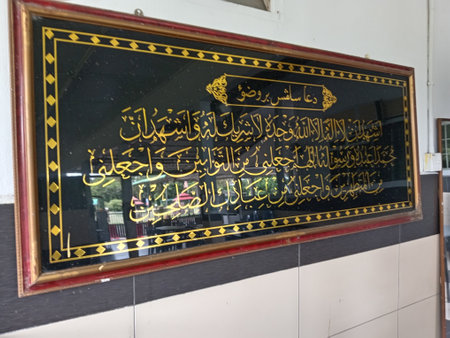 دعا سلفس بروضؤ
اشهد ان لا اله الا الله وحده لا شريك له واشهد ان
محمدا عبده ورسوله اللهم اجعلني من التوابين واجعلني
من المتطهرين واجعلني من عبادك الصلحين